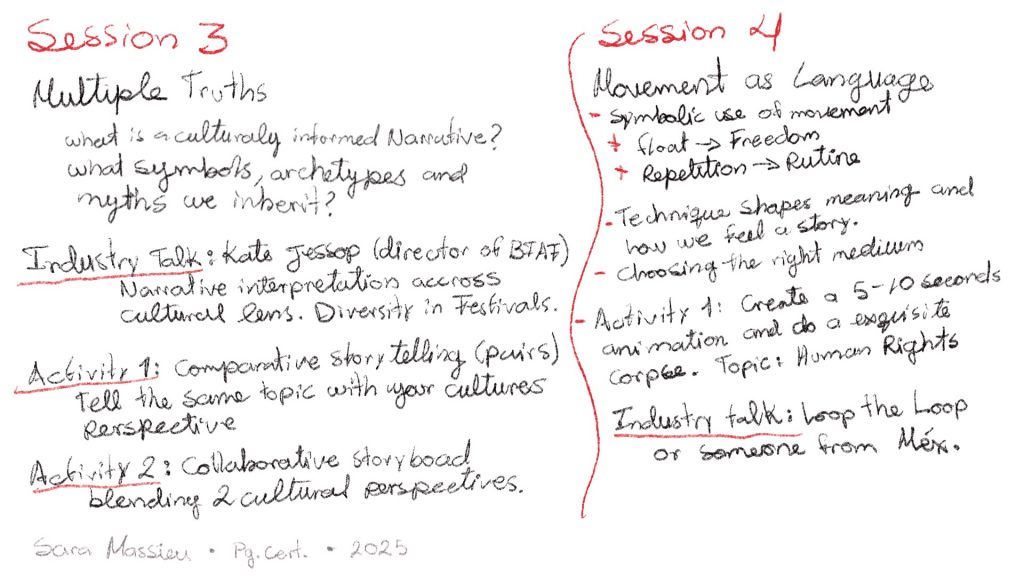 Session 3
Multiple Truths
what is a culturaly informed Narrative?
what symbols, archetypes and
myths we inherit?
Industry Talk: Kate Jessop (director of BTAF)
Narrative interpretation accross
cultural lens. Diversity in Festivals.
Activity 1: Comparative story telling (pairs)
Tell the same topic with your cultures
perspective
Activity 2: Collaborative storyboad
blending 2 cultural perspectives.
Sara Massieu • Pg.Cert. • 2025
Session 4
Movement as Language
- Symbolic use of movement
+ float → Freedom
+ Repetition → Rutine
- Technique shapes meaning and
how we feel a story.
- Choosing the right medium
- Activity 1: Create a 5-10 seconds
animation and do a exquisite
corpse. Topic: Human Rights
Industry talk: Loop the Loop
or someone from Méx.